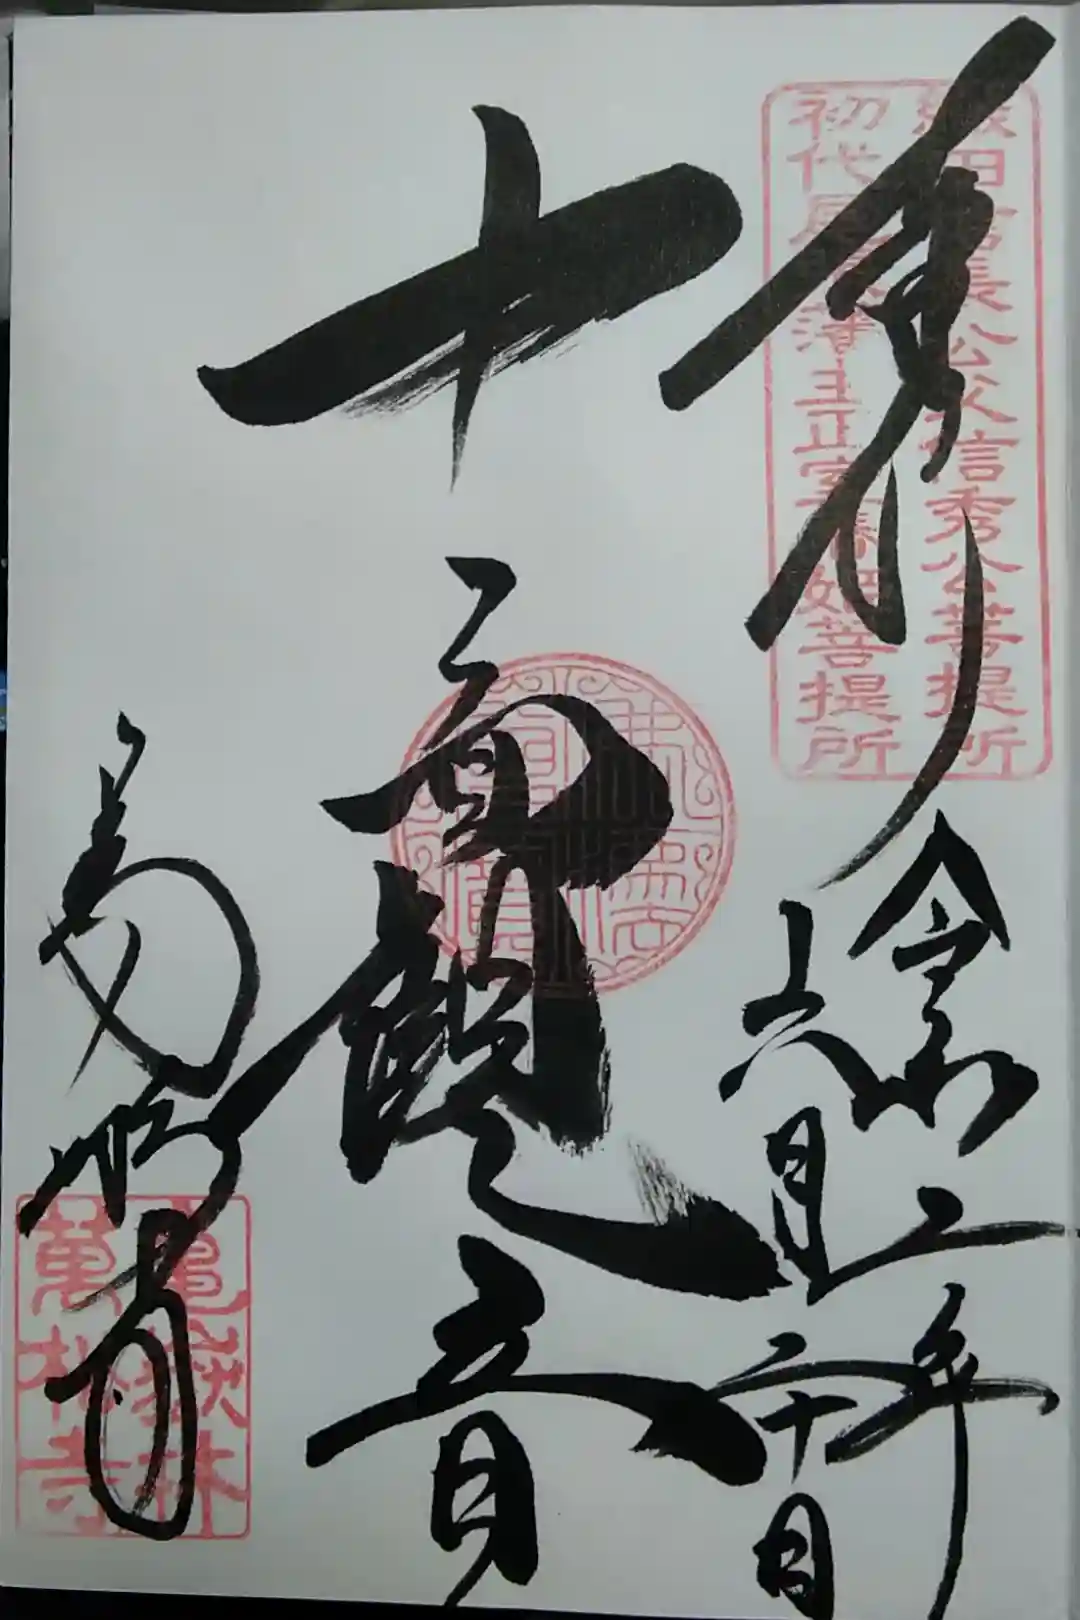 奉拝
織田信長公父信秀公菩提所
初代尾張藩主正室春姫菩提所
令和二年
六月二十日
十一面観世音
佛法僧寶
萬松寺
亀嶽林
萬松寺